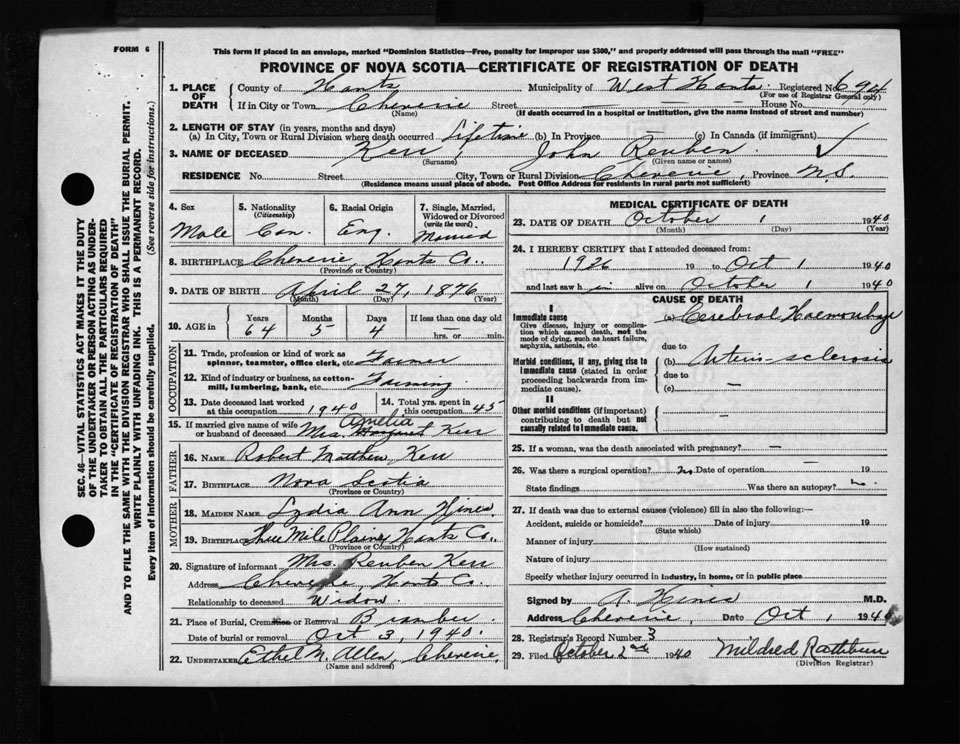 FORM 6
This form if placed in an envelope, marked "Dominion Statistics—Free, penalty for improper use $300," and properly addressed will pass through the mail "FREE"
PROVINCE OF NOVA SCOTIA—CERTIFICATE OF REGISTRATION OF DEATH
1. PLACE OF DEATH
County of Hants Municipality of West Hants Registered No. 694
(For use of Registrar General only)
If in City or Town Cheverie Street — House No.
(Name) (If death occurred in a hospital or institution, give the name instead of street and number)
2. LENGTH OF STAY (in years, months and days)
(a) In City, Town or Rural Division where death occurred Lifetime (b) In Province — (c) In Canada (if immigrant) —
3. NAME OF DECEASED Kerr, John Reuben ✓
(Surname) (Given name or names)
RESIDENCE No. Street City, Town or Rural Division Cheverie, Province N.S.
(Residence means usual place of abode. Post Office Address for residents in rural parts not sufficient)
4. Sex Male
5. Nationality (Citizenship) Can.
6. Racial Origin Eng.
7. Single, Married, Widowed or Divorced (write the word). Married
8. BIRTHPLACE Cheverie, Hants Co..
(Province or Country)
9. DATE OF BIRTH April 27, 1876
(Month) (Day) (Year)
10. AGE in Years 64 Months 5 Days 4 If less than one day old — hrs. or min.
OCCUPATION
11. Trade, profession or kind of work as spinner, teamster, office clerk, etc. Farmer
12. Kind of industry or business, as cotton-mill, lumbering, bank, etc. Farming
13. Date deceased last worked at this occupation 1940
14. Total yrs. spent in this occupation 45
15. If married give name of wife or husband of deceased Mrs. Amelia Margaret Kerr
FATHER
16. NAME Robert Matthew Kerr
17. BIRTHPLACE Nova Scotia
(Province or Country)
MOTHER
18. MAIDEN NAME Lydia Ann Hines
19. BIRTHPLACE Three Mile Plains, Hants Co..
(Province or Country)
20. Signature of informant Mrs. Reuben Kerr
Address Cheverie, Hants Co.
Relationship to deceased Widow.
21. Place of Burial, Cremation or Removal
Date of burial or removal Oct 3, 1940.
22. UNDERTAKER Ethel M. Allen, Cheverie,
(Name and address)
MEDICAL CERTIFICATE OF DEATH
23. DATE OF DEATH October 1 1940
(Month) (Day) (Year)
24. I HEREBY CERTIFY that I attended deceased from:
1926 19 to Oct 1 1940
and last saw h im alive on October 1 1940
CAUSE OF DEATH
I
Immediate cause (a) Cerebral Haemorrhage
Give disease, injury or complication which caused death, not the mode of dying, such as heart failure, asphyxia, asthenia, etc.
due to
Morbid conditions, if any, giving rise to immediate cause (stated in order proceeding backwards from immediate cause).
(b) Arterio-sclerosis
due to
(c) —
II
Other morbid conditions (if important) contributing to death but not causally related to immediate cause. —
25. If a woman, was the death associated with pregnancy? —
26. Was there a surgical operation? No Date of operation — 19
State findings Was there an autopsy?
27. If death was due to external causes (violence) fill in also the following:—
Accident, suicide or homicide? Date of injury 19
(State which)
Manner of injury
(How sustained)
Nature of injury
Specify whether injury occurred in industry, in home, or in public place
Signed by A. Hines M.D.
Address Cheverie, Date Oct 1 1940
28. Registrar's Record Number 3
29. Filed October 2nd 1940 Mildred Rathbun
(Division Registrar)
SEC. 46—VITAL STATISTICS ACT MAKES IT THE DUTY
OF THE UNDERTAKER OR PERSON ACTING AS UNDER-
TAKER TO OBTAIN ALL THE PARTICULARS REQUIRED
IN THE "CERTIFICATE OF REGISTRATION OF DEATH"
AND TO FILE THE SAME WITH THE DIVISION REGISTRAR WHO SHALL ISSUE THE BURIAL PERMIT.
WRITE PLAINLY WITH UNFADING INK. THIS IS A PERMANENT RECORD.
Every item of information should be carefully supplied. (See reverse side for instructions.)